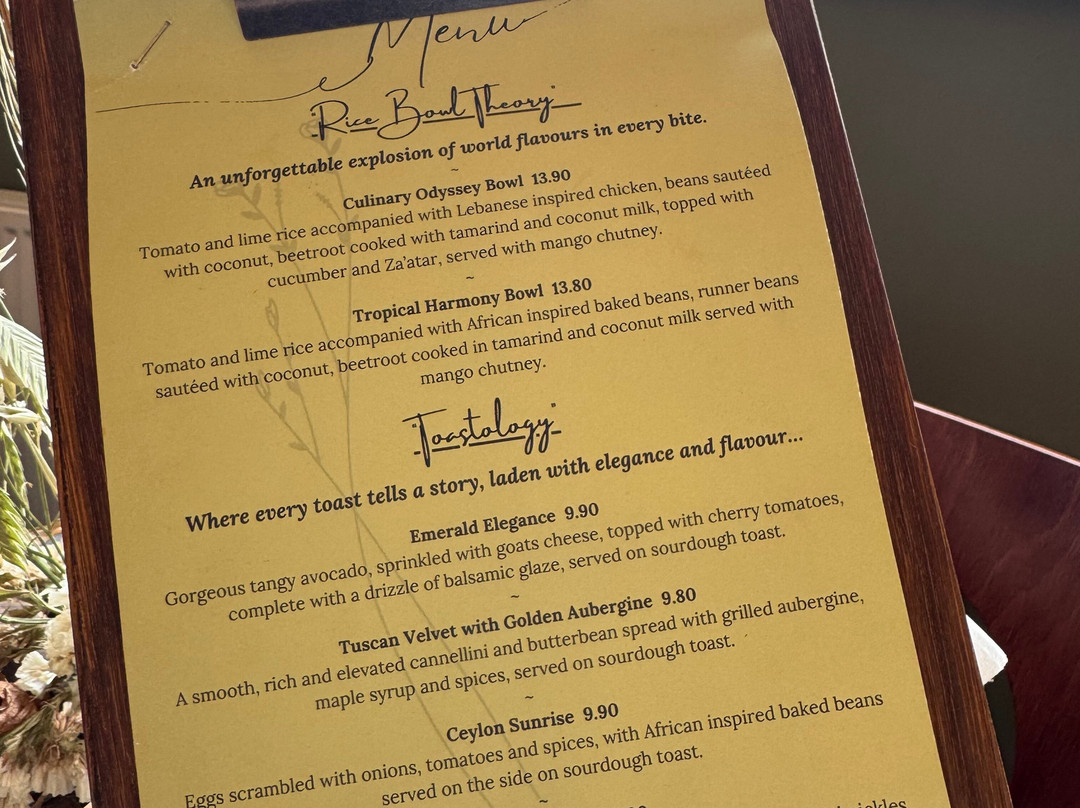 Menu
"Rice Bowl Theory"
An unforgettable explosion of world flavours in every bite.
~
Culinary Odyssey Bowl 13.90
Tomato and lime rice accompanied with Lebanese inspired chicken, beans sautéed
with coconut, beetroot cooked with tamarind and coconut milk, topped with
cucumber and Za'atar, served with mango chutney.
~
Tropical Harmony Bowl 13.80
Tomato and lime rice accompanied with African inspired baked beans, runner beans
sautéed with coconut, beetroot cooked in tamarind and coconut milk served with
mango chutney.
"Toastology"
Where every toast tells a story, laden with elegance and flavour...
Emerald Elegance 9.90
Gorgeous tangy avocado, sprinkled with goats cheese, topped with cherry tomatoes,
complete with a drizzle of balsamic glaze, served on sourdough toast.
~
Tuscan Velvet with Golden Aubergine 9.80
A smooth, rich and elevated cannellini and butterbean spread with grilled aubergine,
maple syrup and spices, served on sourdough toast.
~
Ceylon Sunrise 9.90
Eggs scrambled with onions, tomatoes and spices, with African inspired baked beans
served on the side on sourdough toast.
~